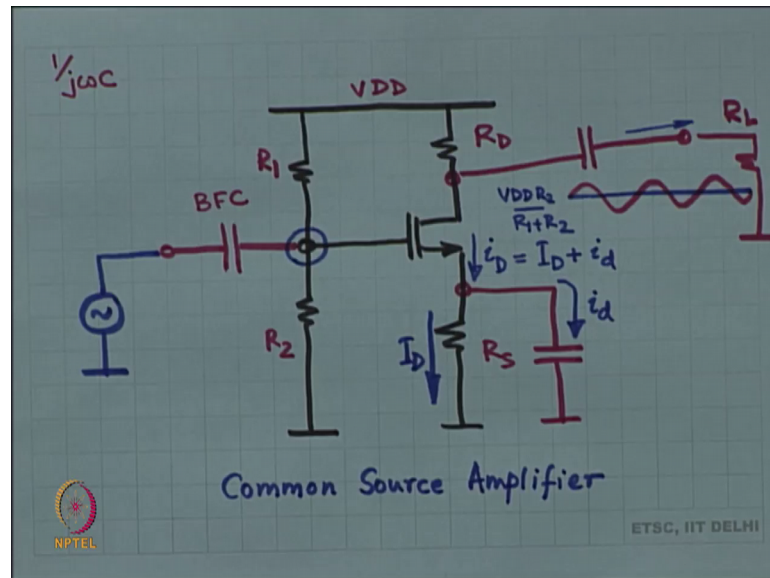 1/jωC
VDD
R1
RD
RL
BFC
VDD R2
R1+R2
iD = ID + id
id
R2
ID
RS
Common Source Amplifier
NPTEL
ETSC, IIT DELHI